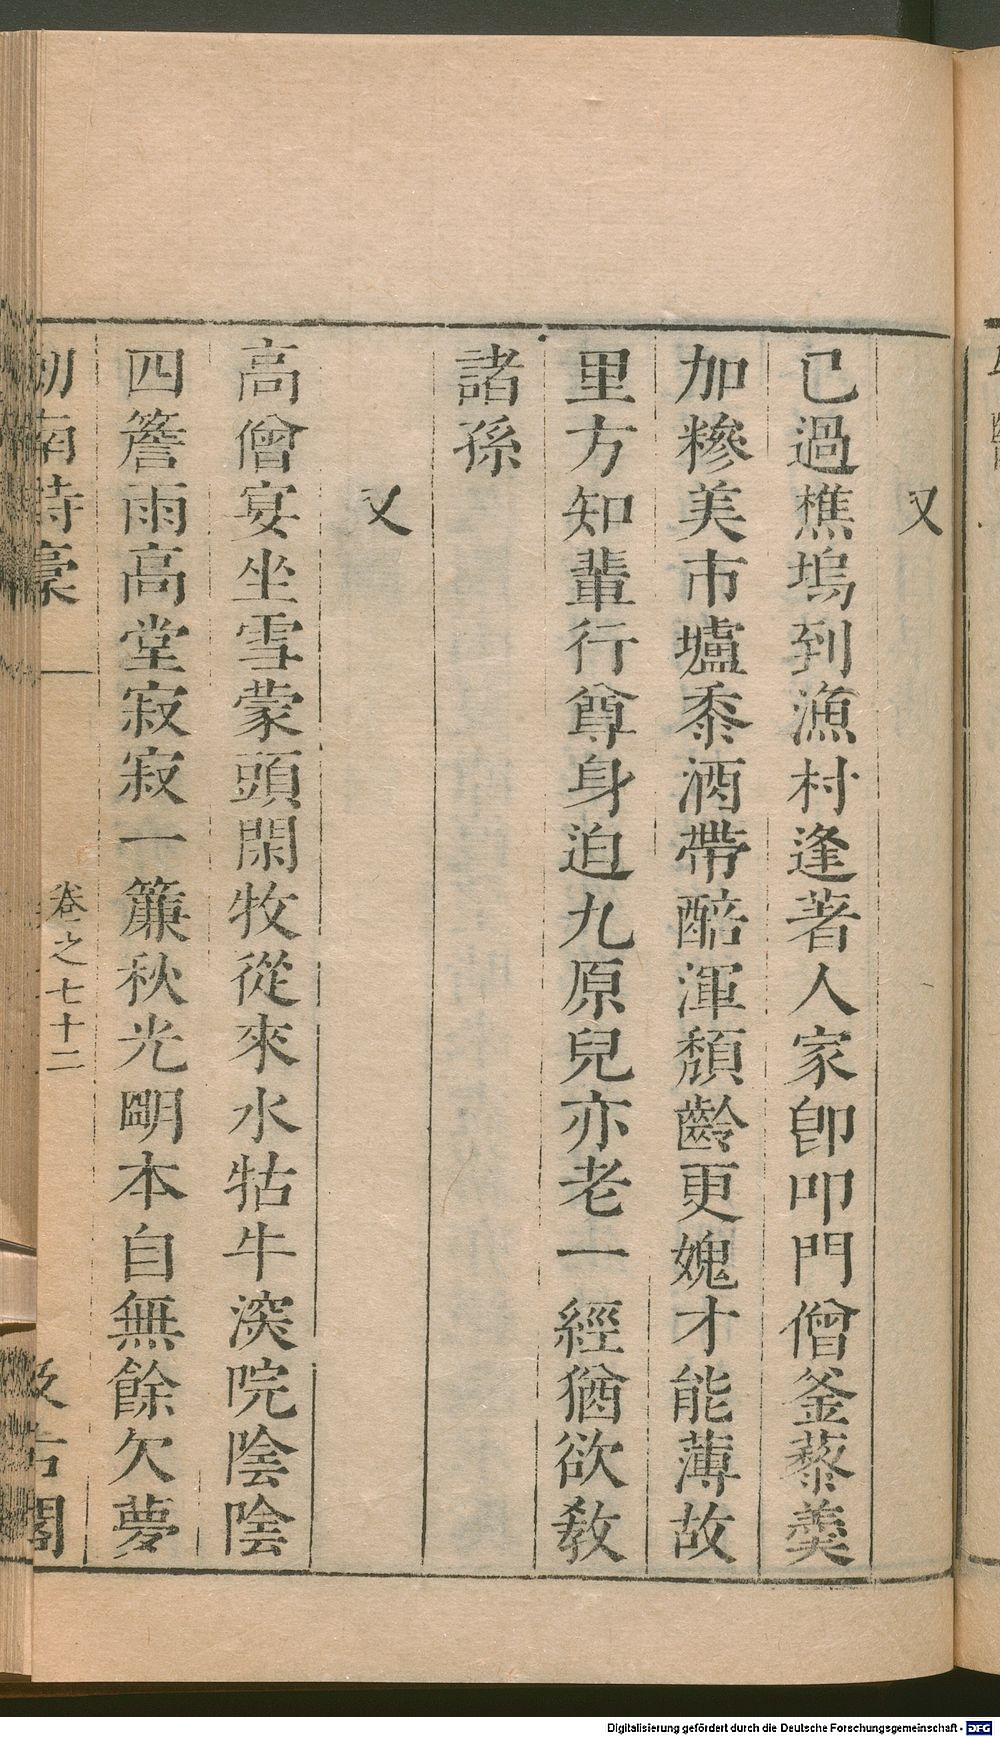 又
已過樵塢到漁村逢著人家卽叩門僧釜藜羹
加糝美市壚黍酒帶醅渾頹齡更媿才能薄故
里方知輩行尊身迫九原兒亦老一經猶欲敎
諸孫
又
高僧宴坐雪蒙頭閑牧從來水牯牛深院陰陰
四簷雨高堂寂寂一簾秋光明本自無餘欠夢
劒南詩稾 卷之七十二 汲古閣
Digitalisierung gefördert durch die Deutsche Forschungsgemeinschaft - DFG